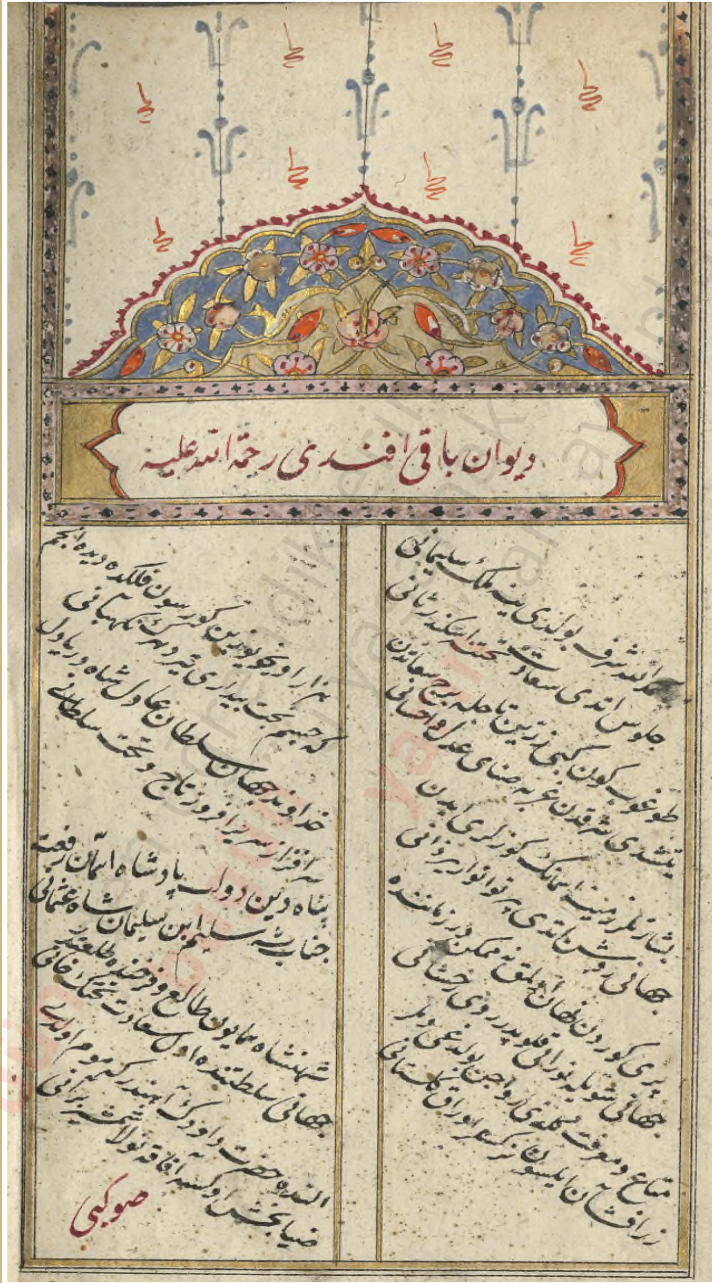 ديوان باقى افندى رحمة الله عليه
الله شرف بولدى ينه ملك سليمانى
جلوس اتدى سعادت تختنه اسكندر ثانى
طوغوب كون كبى زرين تاجله برج سعادتدن
يتشدى شرقدن غربه ضياى عدل و احسانى
بشارتلر زمينه آسمانك كوزلرى آيدن
جهانى روشن اتدى پرتو انوار يزدانى
پرى كوردن نهان اولمق نه ممكن دور زماننده
جهانى شويله نورانى قلوپدر روى رخشانى
متاع معرفت رواجن بولدغى دملر
زر افشان ايلسون اوراق كلستانى
كورسون فلكده ديدهٔ انجم
كه چشم بخت بيدارى نكهبانى
خداوند جهان سلطان عادل شاه دريا دل
سرافراز سرير افروز تاج و تخت سلطانى
پناه دين و دولت پادشاه آسمان رفعت
جناب شه سليم ابن سليمان شاه عثمانى
شهنشاه همايون طالع و فرخنده طلعتدر
جهانى سلطنتده اول سعادت تختنك خانى
النده حضرت داودك آهندر كه موم اولدى
ضيابخش اولسه آفاقه نولا شمشير برانى
صو كبى